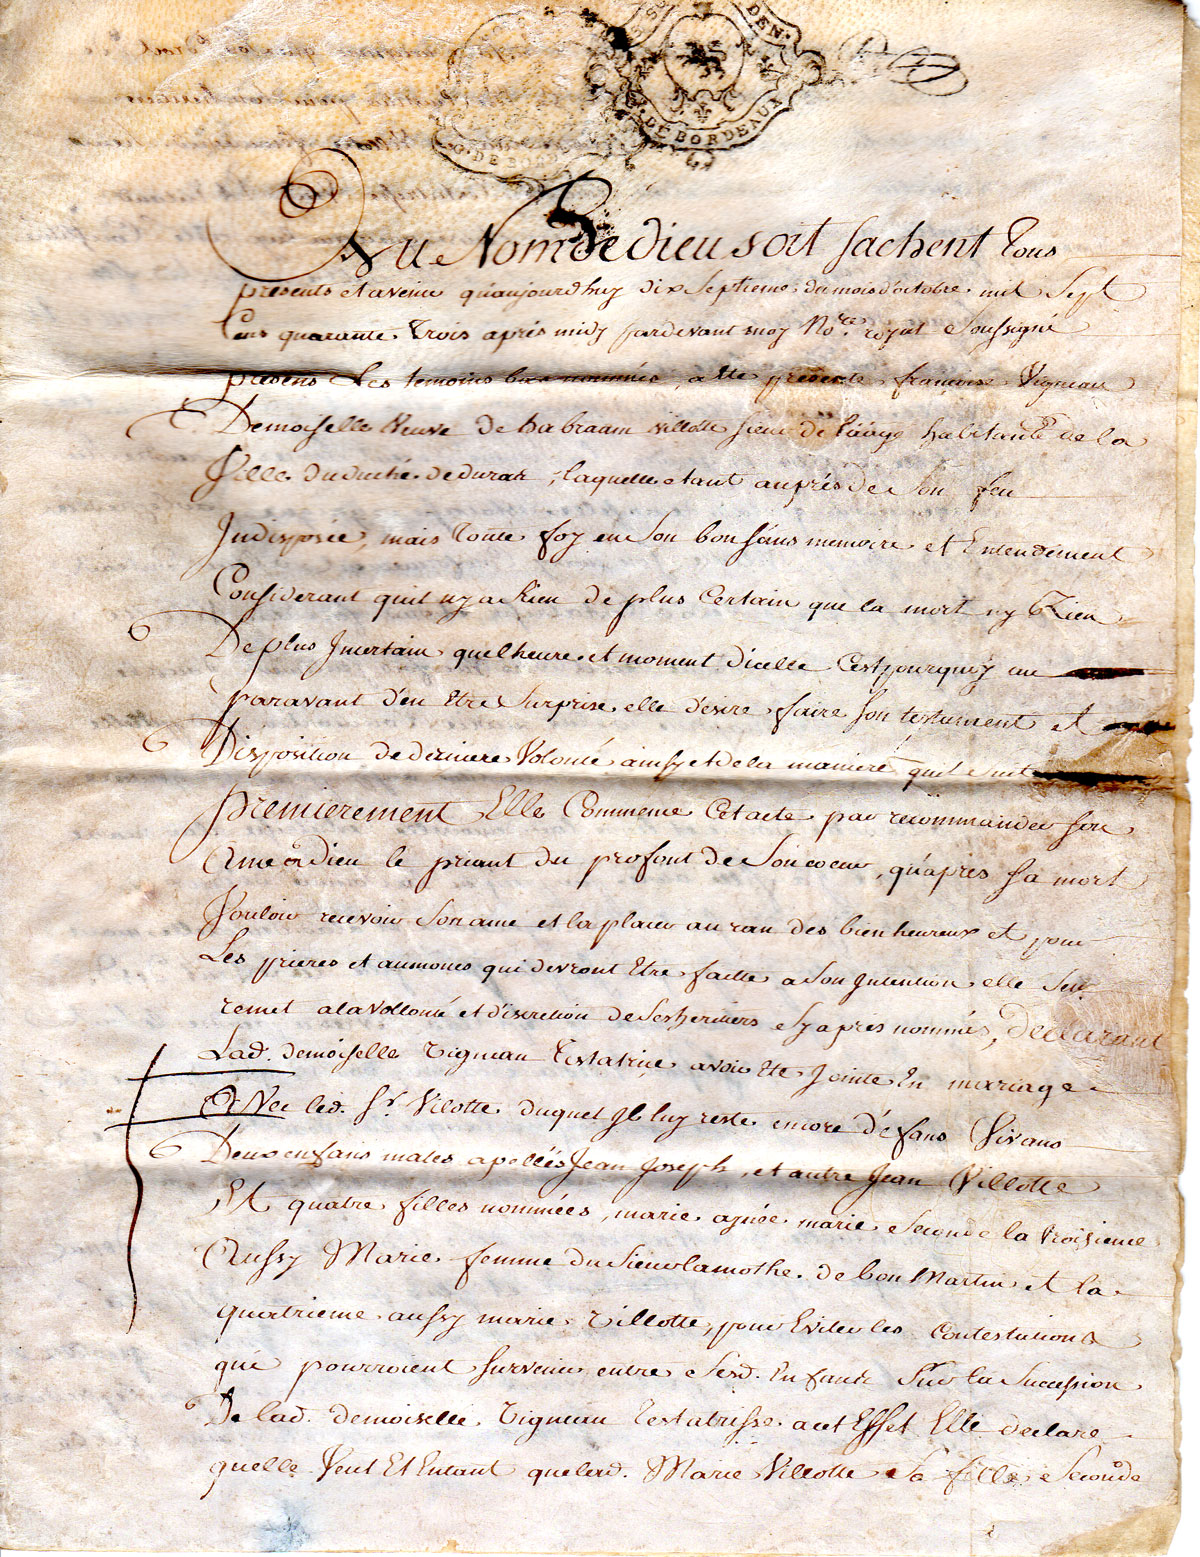 DEN.
DE BORDEAUX
G. DE BORD
Au Nom de dieu soit sachent Tous
presents et avenir quaujourdhuy dix Septieme du mois doctobre mil Sept
Cens quarante Trois aprés midy pardevant moy No.re royal Soussigné
presens Les temoins bas nommés, a ette presente françoise Vigneau
Demoiselle Veuve de habraam villotte sieur de habitante de la
Ville du duché de duras, laquelle etant auprés de Son feu
Indisposée, mais Toutte foy en Son bon sans memoire et Entendement
Considerant quil ny a Rien de plus Certain que la mort ny Rien
De plus Incertain quel heure et moment dicelle Cest pourquoy au
paravant d'en Etre Surprise elle d'esire faire Son testament et
Disposition de derniere Volonté ainsy et de la maniere quil Suit
premierement Elle Commence Cet acte par recommander son
Ame à dieu le priant du profont de Son coeur, qu'aprés sa mort
Vouloir recevoir Son ame et la placer au ran des bien heureux et pour
Les prieres et aumones qui devront Etre faitte a Son Intention elle Sen
remet a la Vollonté et discretion de Ses heritiers Sy aprés nommés, Declarant
Lad. demoiselle Vigneau Testatrice avoir Eté Jointe En mariage
Avec led. Sr. Vilotte duquel Il luy reste encore d'Efans Vivans
Deux enfans males apellés Jean Joseph, et autre Jean Villotte
Et quatre filles nommées, marie aynée marie Seconde la troisieme
Aussy Marie femme du Sieur lamothe de bon Martin et la
quatrieme aussy marie Villotte, pour Eviter les Contestations
que pourroient Survenir entre Sesd. Enfants Sur la Succession
De lad. demoiselle Vigneau Testatrisse a cet Effet Elle declare
quelle Veut Et Entant que lad. Marie Villotte Sa fille Seconde